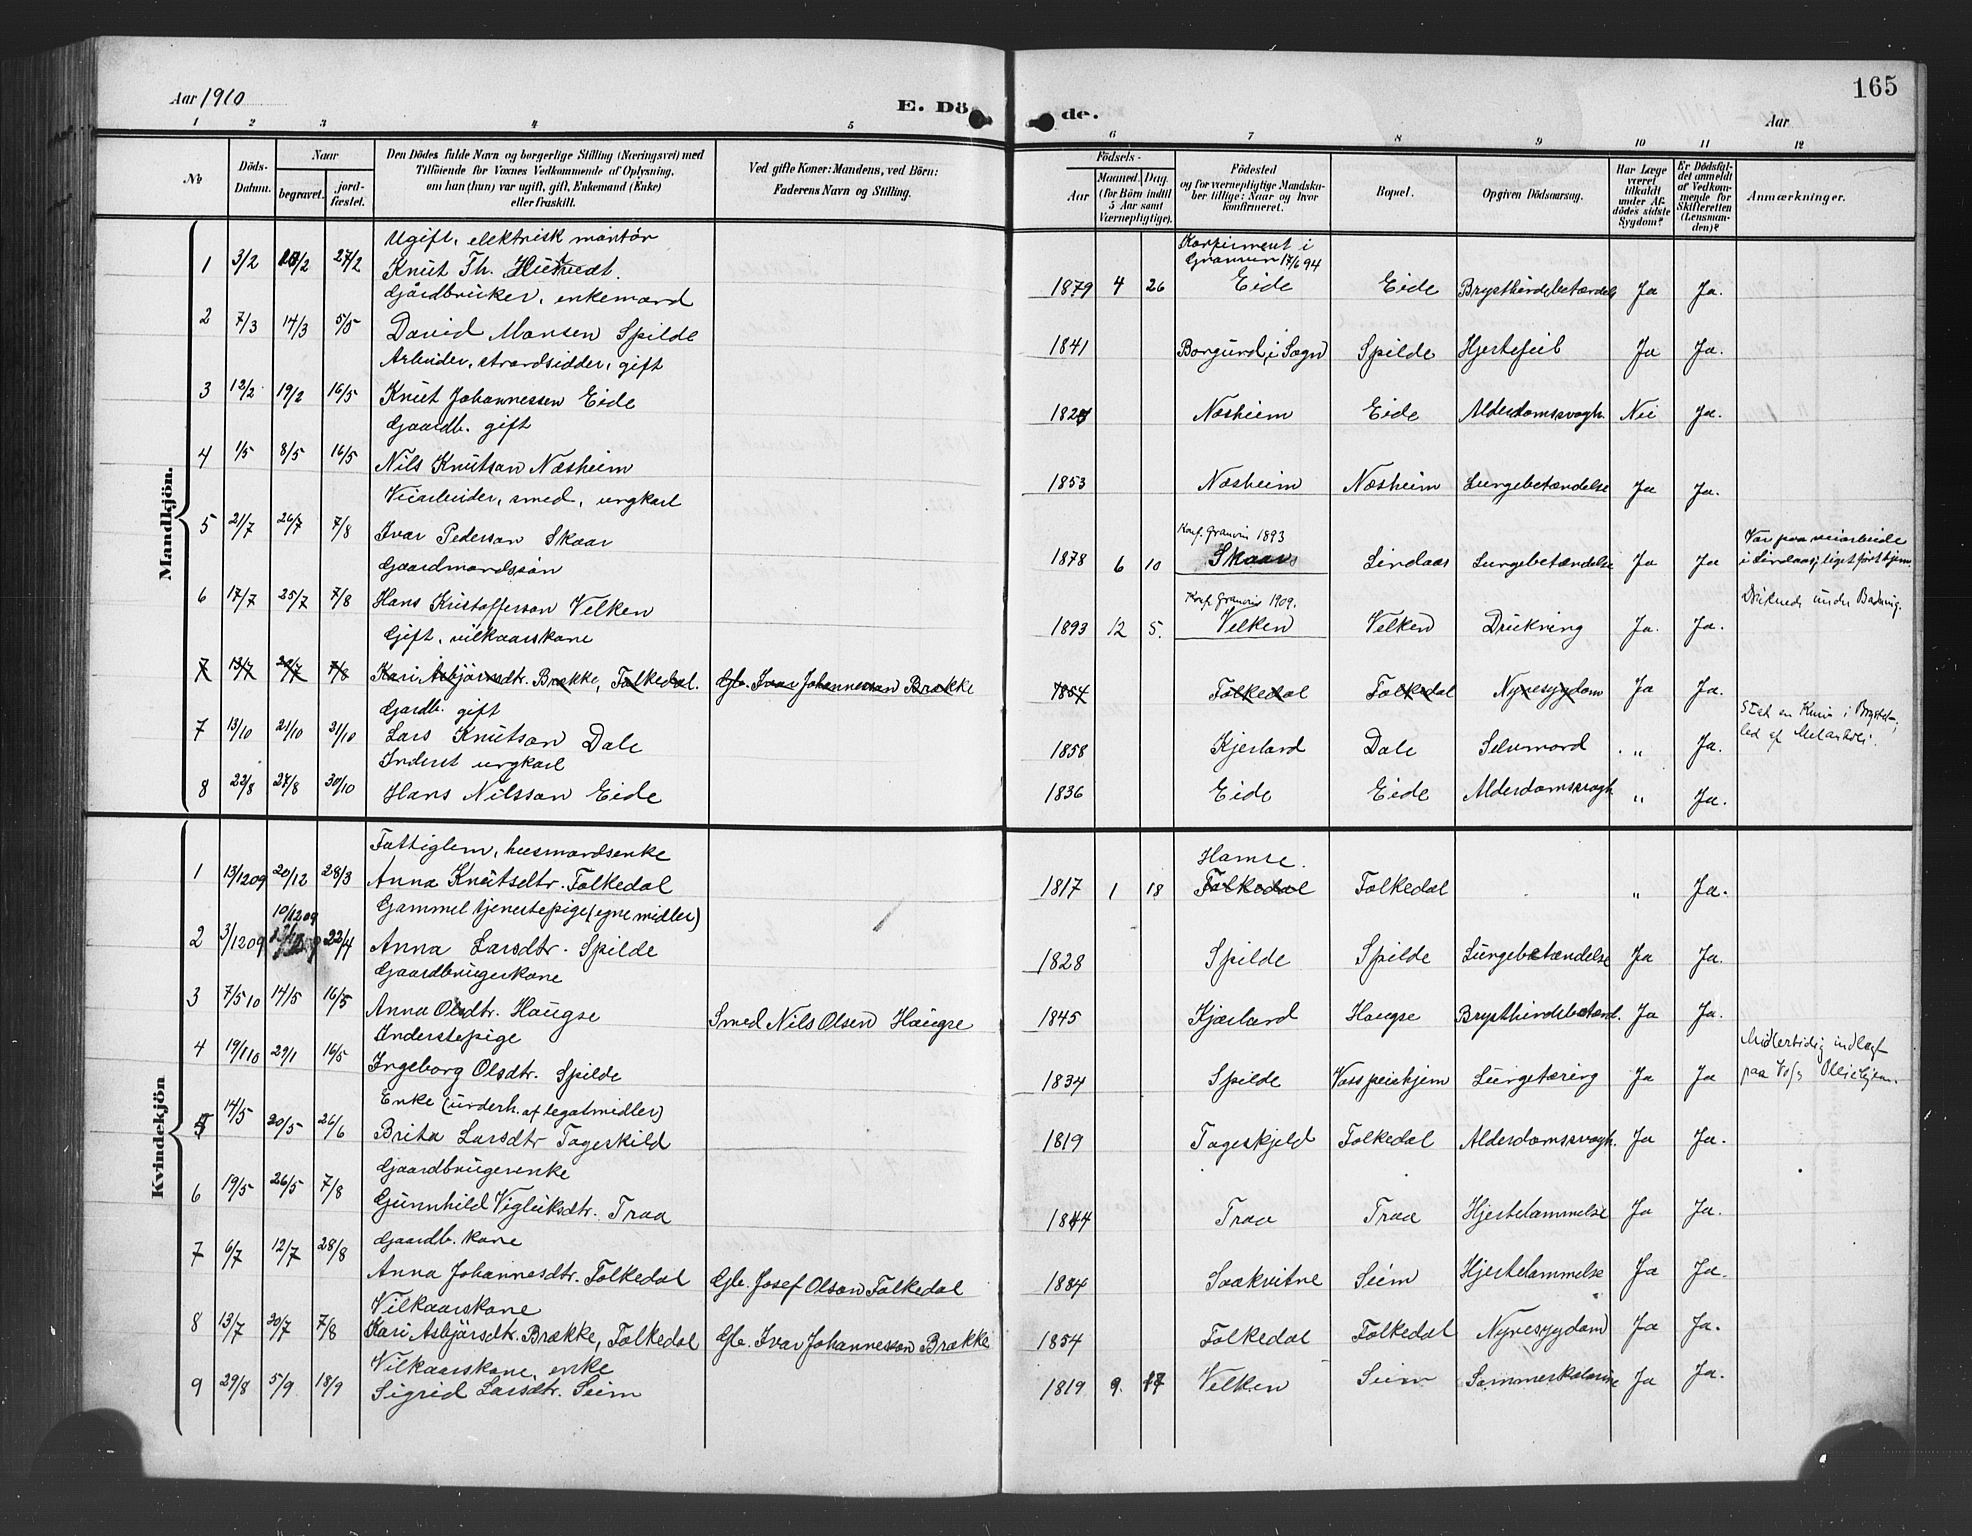 Aar 1910
E. Dö de.
165
Aar
1 2 3 4 5 6 7 8 9 10 11 12
№
Döds-Datum.
Naar
begravet.
jord-fæstet.
Den Dödes fulde Navn og borgerlige Stilling (Næringsvei) med
Tilföiende for Voxnes Vedkommende af Oplysning,
om han (hun) var ugift, gift, Enkemand (Enke)
eller fraskilt.
Ved gifte Koner: Mandens, ved Börn:
Faderens Navn og Stilling.
Födsels-
Aar
Maaned. Dag.
(for Börn indtil
5 Aar samt
Værnepligtige).
Födested
og for værnepligtige Mandska-
ber tillige: Naar og hvor
konfirmeret.
Bopæl.
Opgiven Dödsaarsag.
Har Læge
været
tilkaldt
under Af-
dödes sidste
Sygdom?
Er Dödsfal-
det anmeldt
af Vedkom-
mende for
Skifteretten
(Lensman-
den)?
Anmærkninger.
Mandkjön.
Ugift, elektrisk montör
Konfirmert i
Granvin 17/6 94
1 3/2 /2 27/2 Knut Th. 1879 4 26 Eide Eide Brysthindebetændels Ja Ja.
Gårdbruker, enkemand
2 7/3 14/3 5/5 David Monsen Spilde 1841 Borgund, i Sogn Spilde Hjertefeil Ja Ja.
Arbeider, strandsidder, gift
3 12/2 19/2 16/5 Knut Johannessen Eide Næsheim Eide Alderdomssvagh. Nei Ja.
Gaardb. gift
4 1/5 8/5 16/5 Nils Knutson Næsheim 1853 Næsheim Næsheim Lungebetændelse Ja Ja.
Veiarbeider, smed, ungkarl
Konf. Granvin 1893
Var paa veiarbeide
5 21/7 26/7 7/8 Ivar Pederson Skaar 1878 6 10 Skaar Lindaas Lungebetændelse Ja Ja i Lindaas; liget fört hjem.
Gaardmandssön
Konf. Granvin 1909.
Druknede under Badning.
6 17/7 25/7 7/8 Hans Kristofferson Velken 1893 12 5. Velken Velken Drukning Ja. Ja.
Gift, vilkaarskone
7 13/7 20/7 7/8 Kari Asbjörnsdtr. Brække, Folkedal. Gb. Ivar Johannesson Brække 1854 Folkedal Folkedal Nyresygdom Ja Ja.
Gardb. gift
Stak en Kniv i Brystet,
7 13/10 21/10 31/10 Lars Knutson Dale 1858 Kjerland Dale Selvmord " Ja. led af Melankoli.
Inderst ungkarl
8 22/8 27/8 30/10 Hans Nilsson Eide 1836 Eide Eide Alderdomssvagh. " Ja.
Kvindekjön
Fattiglem, husmandsenke
Hamre.
1 13/12 09 20/12 28/3 Anna Knutsdtr. Folkedal 1817 1 18 Folkedal Folkedal " Ja.
Gammel tjenestepige (egne midler)
10/12 09
2 3/12 09 22/4 Anna Larsdtr. Spilde 1828 Spilde Spilde Lungebetændelse Ja Ja.
Gaardbrugerkone
3 7/5 10 14/5 16/5 Anna Olsdtr. Haugse Smed Nils Olsen Haugse 1845 Kjærland Haugse Brysthindebetænd. Ja Ja.
Inderstepige
Midlertidig indlagt
4 19/1 10 29/1 16/5 Ingeborg Olsdtr. Spilde 1834 Spilde Lungetæring Ja Ja
Enke (underh. af legatmidler)
5 14/5 20/5 26/6 Brita Larsdtr Togerskild 1819 Togeskjeld Folkedal Alderdomssvagh. Ja Ja.
Gaardbrugerenke
6 19/5 26/5 7/8 Gunnhild Vigleiksdtr. Traa 1844 Traa Traa Hjertelammelse Ja Ja.
Gaardb. kone
7 6/7 12/7 28/8 Anna Johannesdtr. Folkedal Gb. Josef Olson Folkedal 1884 Saakvitne Seim Hjertelammelse Ja Ja.
Vilkaarskone
8 13/7 20/7 7/8 Kari Asbjörsdtr. Brække, Folkedal Gb. Ivar Johannesson Brække 1854 Folkedal Folkedal Nyresygdom Ja Ja.
Vilkaarskone, enke
9 29/8 5/9 18/9 Sigrid Larsdtr. Seim 1819 9. 17 Velken Seim Sommerkolerine Ja Ja.